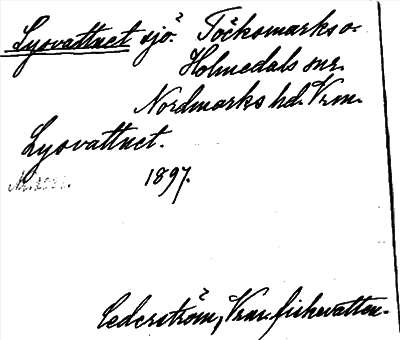 Lysvattnet sjö. Töcksmarks o.
Holmedals snr.
Nordmarks hd. Vrm.
Lysvattnet.
1897.
Cederström, Vrm. fiskevatten.